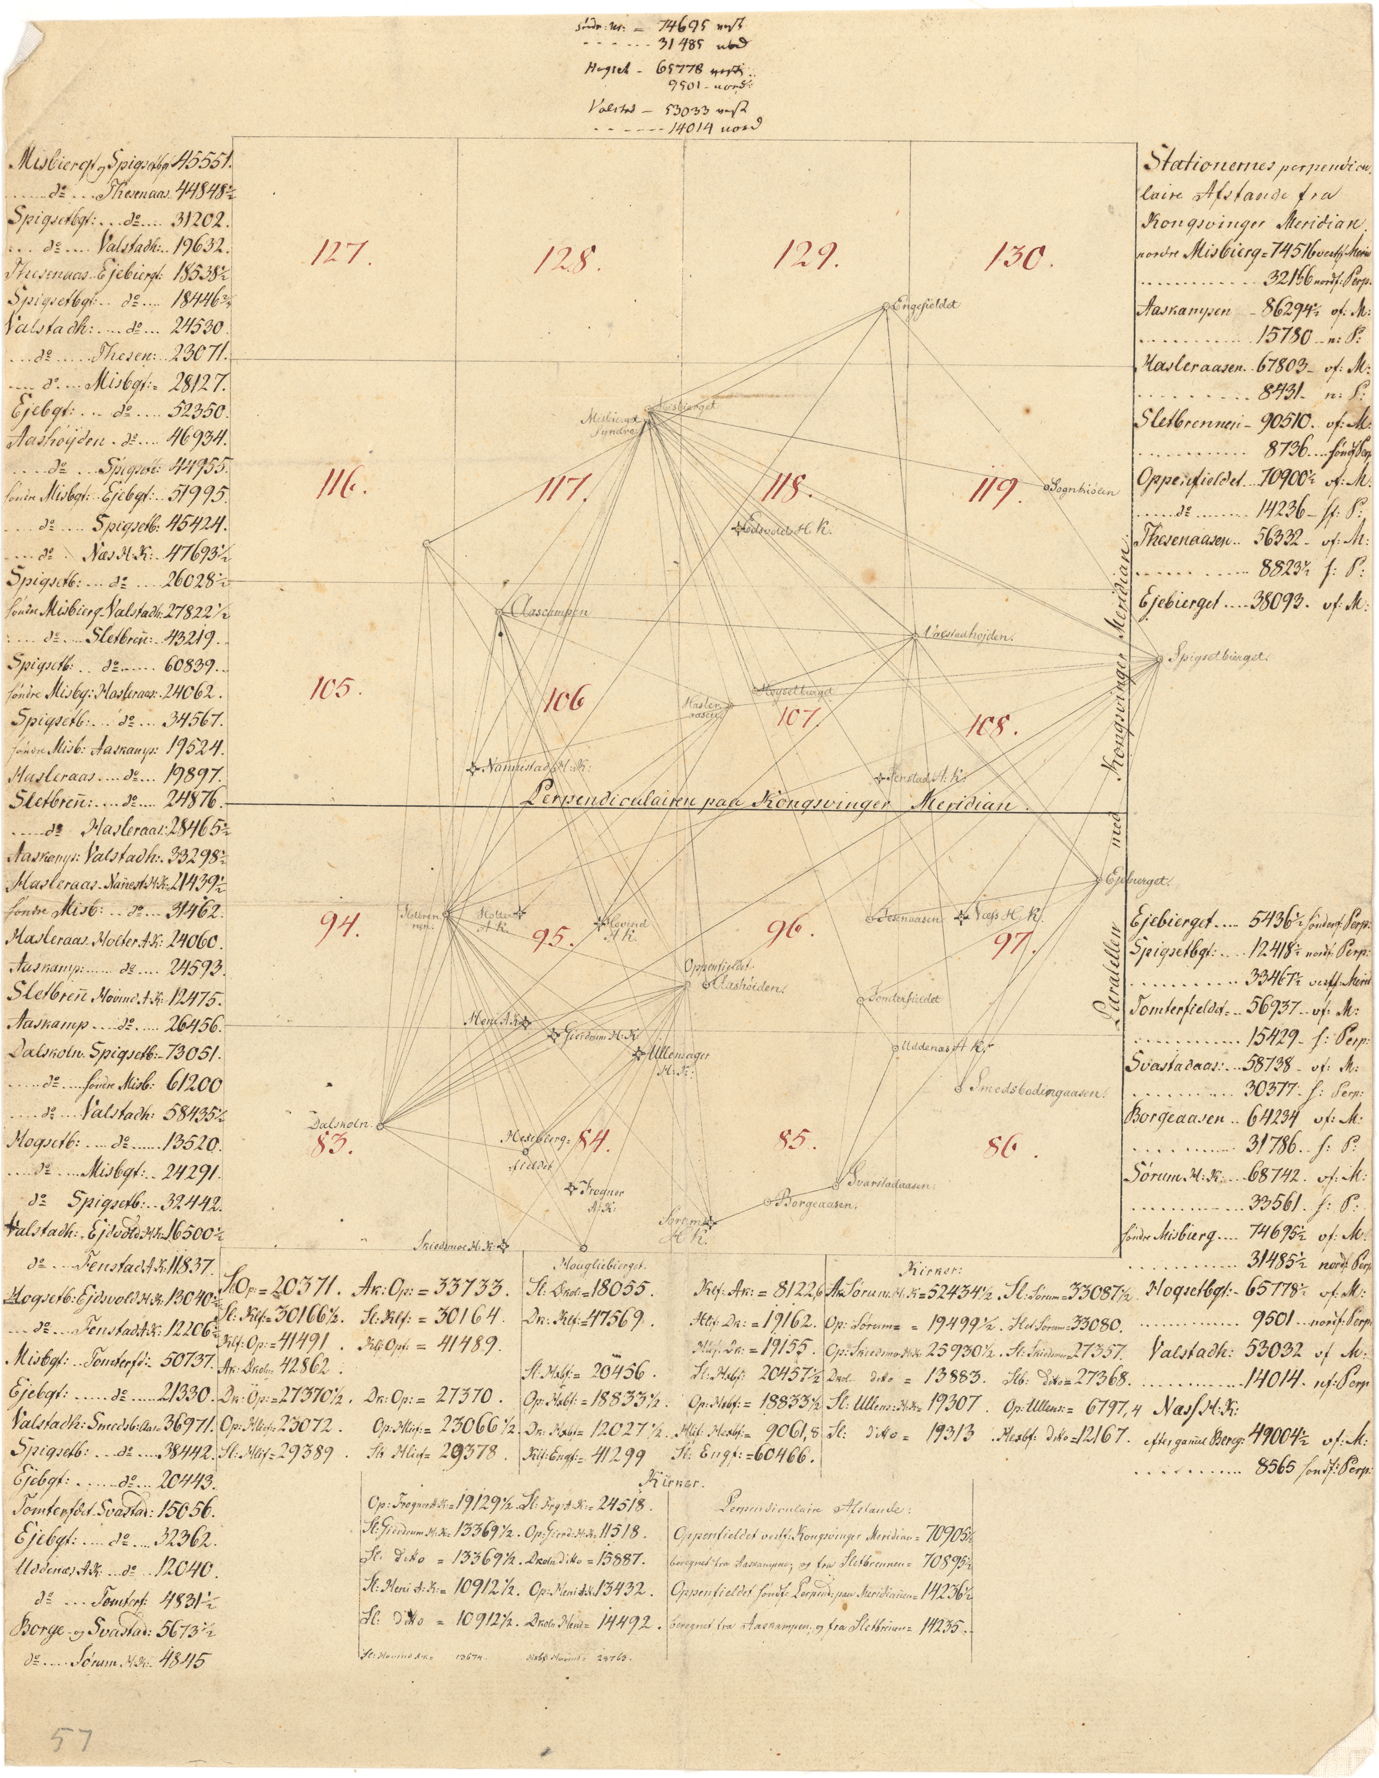 74695 vest
31485 nord
Hogset - 65778
9501 - nord
Valstad - 53033 vest
14014 nord
Misbierget og Spigsetbgt 45551.
do Thesenaas. 44848½
Spigsetbgt: do 31202.
do Valstadh: 19632.
Thesenaas. Ejebiergt: 18538½
Spigsetbgt: do 18446¾
Valstadh: do 24530.
do Thesen: 23071.
do Misbgt: 28127.
Ejebgt: do 52350.
Aashöyden. do 46934.
do Spigsetb: 44955.
söndre Misbgt: Ejebgt: 51995.
do Spigsetb: 45424.
do Næs H.K: 47693½
Spigsetb: do 26028½
söndre Misbierg. Valstadh: 27822½
do Sletbreñ: 43219.
Spigsetb: do 60839.
söndre Misbg: Hasleraas: 24062.
Spigsetb: do 34567.
söndre Misb: Aaskamp: 19524.
Hasleraas do 19897.
Sletbreñ: do 24876.
do Hasleraas: 28465½
Aaskamp: Valstadh: 33298½
Hasleraas. Nañest: H.K: 21439½
söndre Misb: do 31462.
Hasleraas. Holter A.K: 24060.
Aaskamp: do 24593.
Sletbreñ Hovind A.K: 12475.
Aaskamp do 26456.
Dalskoln. Spigsetb: 73051.
do söndre Misb: 61200
do Valstadh: 58435½
Hogsetb: do 13520.
do Misbgt: 24291.
do Spigsetb: 32442.
Valstadh: Ejdsvold H.K: 16500½
do Tenstad A.K: 11837.
Hogsetb: Ejdsvold H.K: 13040½
do Tenstad A.K: 12206½
Misbgt: Tomterfd: 50737.
Ejebgt: do 21330.
Valstadh: Smedsb: Aas: 36971.
Spigsetb: do 38442.
Ejebgt: do 20443.
Tomterfdet. Svastad: 15056.
Ejebgt: do 32362.
Uddenæs A.K. do 12040.
do Tomterf: 4831½
Borge og Svastad: 5673½
do Sórum H.K: 4845
57
127.
128.
129.
130.
Engefieldet
Misbierget
Syndre
116.
117.
118.
119.
Sognhiólen
Eidsvolds H. K.
Aascampen
Valstadhöjden.
Spigsetbierget.
105.
106
107.
108.
Hogsetbierget
Hasler
aasen
Nannestad H.K:
Tenstad A. K.
Perpendiculairen paa Kongsvinger Meridian.
Parallellen med Kongsvinger Meridian.
Ejebierget.
94.
95.
96.
97.
Holter
A K.
Hovind
A K.
Tesenaasen
Næss H K.
Oppenfieldet
Aashöiden.
Tomterfieldet
Heni A.K.
Gierdrum H.K.
Ullensager
H.K:
Uddenæs A K.
Smedsbodingaasen.
Dalskoln.
83.
84.
85.
86.
Hexeberg
fieldet
Frogner
A.K:
Svarstadaasen.
Borgeaasen.
Sorum
H K.
Skiedsmoe H.K:
Mougliebierget.
Stationernes perpendicu-
laire Afstande fra
Kongsvinger Meridian.
nordre Misbierg = 74516 vestf: Meri
32166 nordf: Perp:
Aaskampen - 86294½ vf: M:
15780 n: P:
Hasleraasen. 67803 vf: M:
8431 n: P:
Sletbrennen - 90510 vf: M:
8736 söndf Perp
Oppenfieldet 70900½ vf: M:
do 14236 sf: P:
Thesenaasen 56332 vf: M:
8823½ s: P:
Ejebierget 38093. vf: M:
Ejebierget 5436½ sönderf: Perp:
Spigsetbgt: 12418½ nordf: Perp:
33467½ vestf: Merid
Tomterfieldet 56937 vf: M:
15429 s: Perp:
Svastadaas: 58738 vf: M:
30377 s: Perp:
Borgeaasen 64234 vf: M:
31786 s: P:
Sórum H.K: 68742 vf: M:
33561 s: P:
söndre Misbierg 74695½ vf: M:
31485½ nordf Perp
Hogsetbgt: 65778½ vf: M:
9501 nordf: Perp
Valstadh: 53032 vf M:
14014 nf: Perp
Næss H.K:
efter gamel Bereg: 49004½ vf: M:
8565 sondf: Perp:
St. Op: = 20371. Ak: Op: = 33733. St: Dkol = 18055. Klf: Ak: = 81226
St: Klf = 30166½. St: Klf: = 30164 Dk: Klf = 47569. Hlf: Dk: = 19162.
Klf: Op: = 41491 Klf: Op: = 41489. Hlf: Dk: = 19155.
Ak: Dkoln 42862. St: Hxbf: = 20456. St: Hxbf: 20457½
Dk: Op: = 27370½. Dk: Op: = 27370. Op: Hxbf: = 18833½. Op: Hxbf: = 18833½
Op: Hlif = 23072. Op: Hlif: = 23066½ Dk: Hxbf = 12027½. Hlif: Hexbf: = 9061,8
St: Hlif = 29389 St: Hlif = 29378 Klf: Engf: = 41299 St: Engf: = 60466.
Kirker:
Ak Sórum H.K = 52434½ St: Sórum = 33087½
Op: Sórum = 19499½ 33080.
Op: Skiedsmo H.K: 25930½. St: Skiedsm = 27357.
Dkol dito = 13883. Stb: dito = 27368.
St: Ullens: H.K: = 19307 Op: Ullens: = 6797,4
St: dito = 19313 Hexbf: dito = 12167.
Kirker.
Op: Frogner A.K = 19129½. St: Frg: A.K = 24518.
St: Gierdrum H.K = 13369½. Op: Gierd: H.K 11518.
St: ditto = 13369½. Dkoln Ditto = 15887.
St: Heni A.K: = 10912½. Op: Heni A.K 13432.
St: ditto = 10912½. Dkoln Heni = 14492.
Perpendiculaire Afstande:
Oppenfieldet vestf: Kongsvinger Meridian = 70905½
beregnet fra Aaskampen, og fra Sletbrennen = 70895½
Oppenfieldet söndf: Perpend: paa Meridianen = 14236½
beregnet fra Aaskampen, og fra Sletbrenn = 14235.